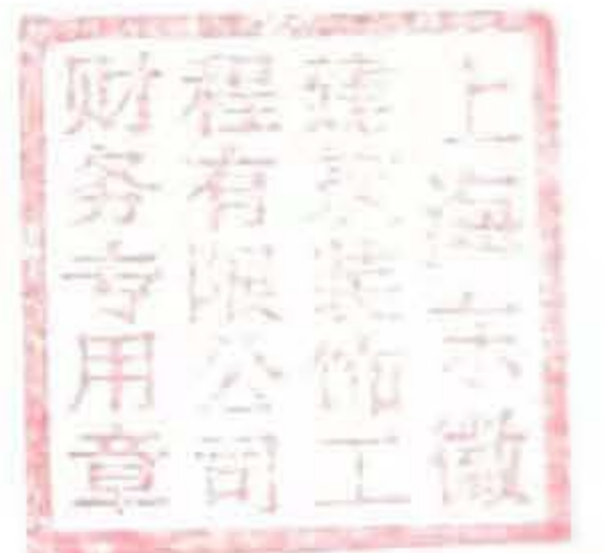 上海东徽
建筑装饰工
程有限公司
财务专用章